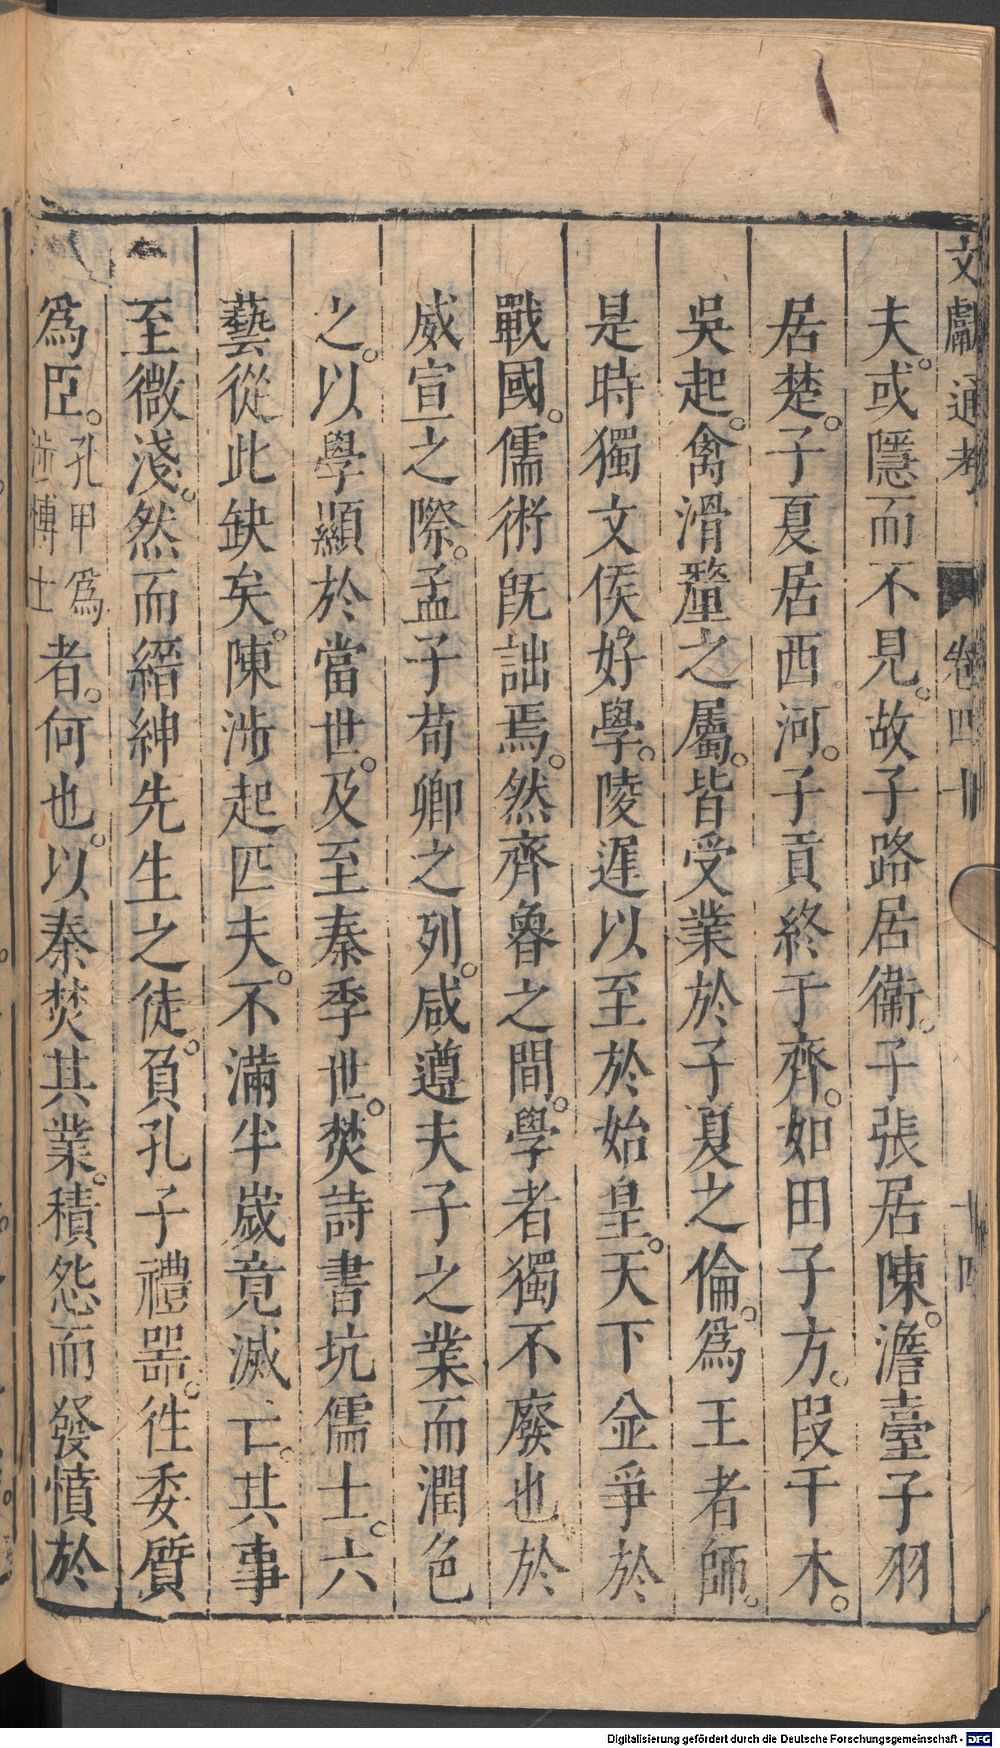 文獻通考 卷四十 十四
夫。或隱而不見。故子路居衞。子張居陳。澹臺子羽
居楚。子夏居西河。子貢終于齊。如田子方。段干木。
吳起。禽滑釐之屬。皆受業於子夏之倫。爲王者師。
是時獨文侯好學。陵遲以至於始皇。天下並爭於
戰國。儒術旣詘焉。然齊魯之間。學者獨不廢也。於
威宣之際。孟子荀卿之列。咸遵夫子之業而潤色
之。以學顯於當世。及至秦季世。焚詩書坑儒士。六
藝從此缺矣。陳涉起匹夫。不滿半歲竟滅亡。其事
至微淺。然而縉紳先生之徒。負孔子禮器。徃委質
爲臣。孔甲爲涉博士者。何也。以秦焚其業。積怨而發憤於
Digitalisierung gefördert durch die Deutsche Forschungsgemeinschaft - DFG